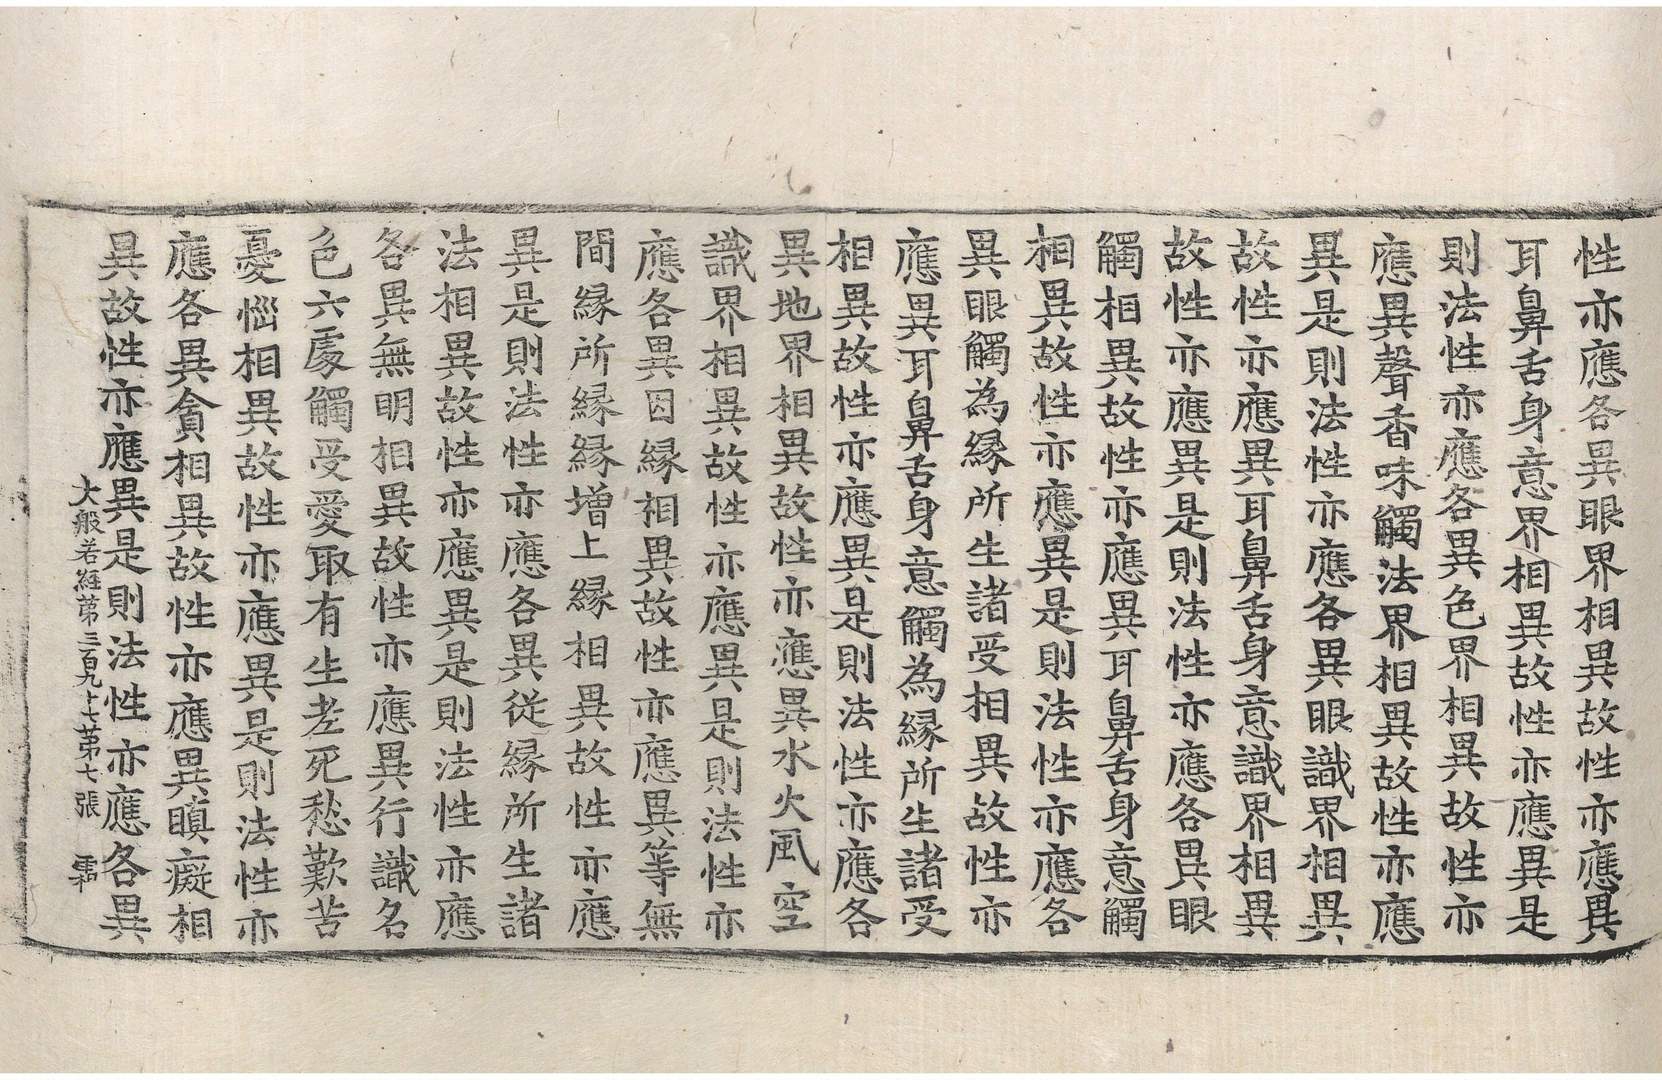 性亦應各異眼界相異故性亦應異
耳鼻舌身意界相異故性亦應異是
則法性亦應各異色界相異故性亦
應異聲香味觸法界相異故性亦應
異是則法性亦應各異眼識界相異
故性亦應異耳鼻舌身意識界相異
故性亦應異是則法性亦應各異眼
觸相異故性亦應異耳鼻舌身意觸
相異故性亦應異是則法性亦應各
異眼觸為縁所生諸受相異故性亦
應異耳鼻舌身意觸為縁所生諸受
相異故性亦應異是則法性亦應各
異地界相異故性亦應異水火風空
識界相異故性亦應異是則法性亦
應各異因縁相異故性亦應異等無
間縁所縁縁增上縁相異故性亦應
異是則法性亦應各異従縁所生諸
法相異故性亦應異是則法性亦應
各異無明相異故性亦應異行識名
色六處觸受愛取有生老死愁歎苦
憂惱相異故性亦應異是則法性亦
應各異貪相異故性亦應異瞋癡相
異故性亦應異是則法性亦應各異
大般若経第三百九十七第七張